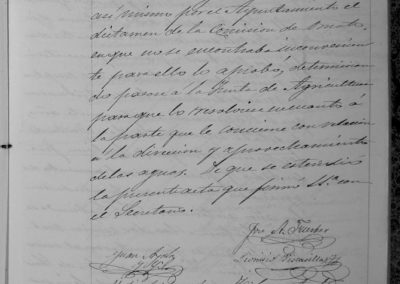 así mismo por el Ayuntamiento el
dictamen de la Comision de Ornato,
en que no se encontraba inconvenien
te para ello lo aprobó, determinan
do pasase a la Junta de Agricultura
para que lo resolviese en cuanto a
la parte que le concierne con relacion
a la direccion y aprovechamiento
de las aguas. De que se estendió
la presente acta que firmó S. S.ª con
el Secretario.
Juan